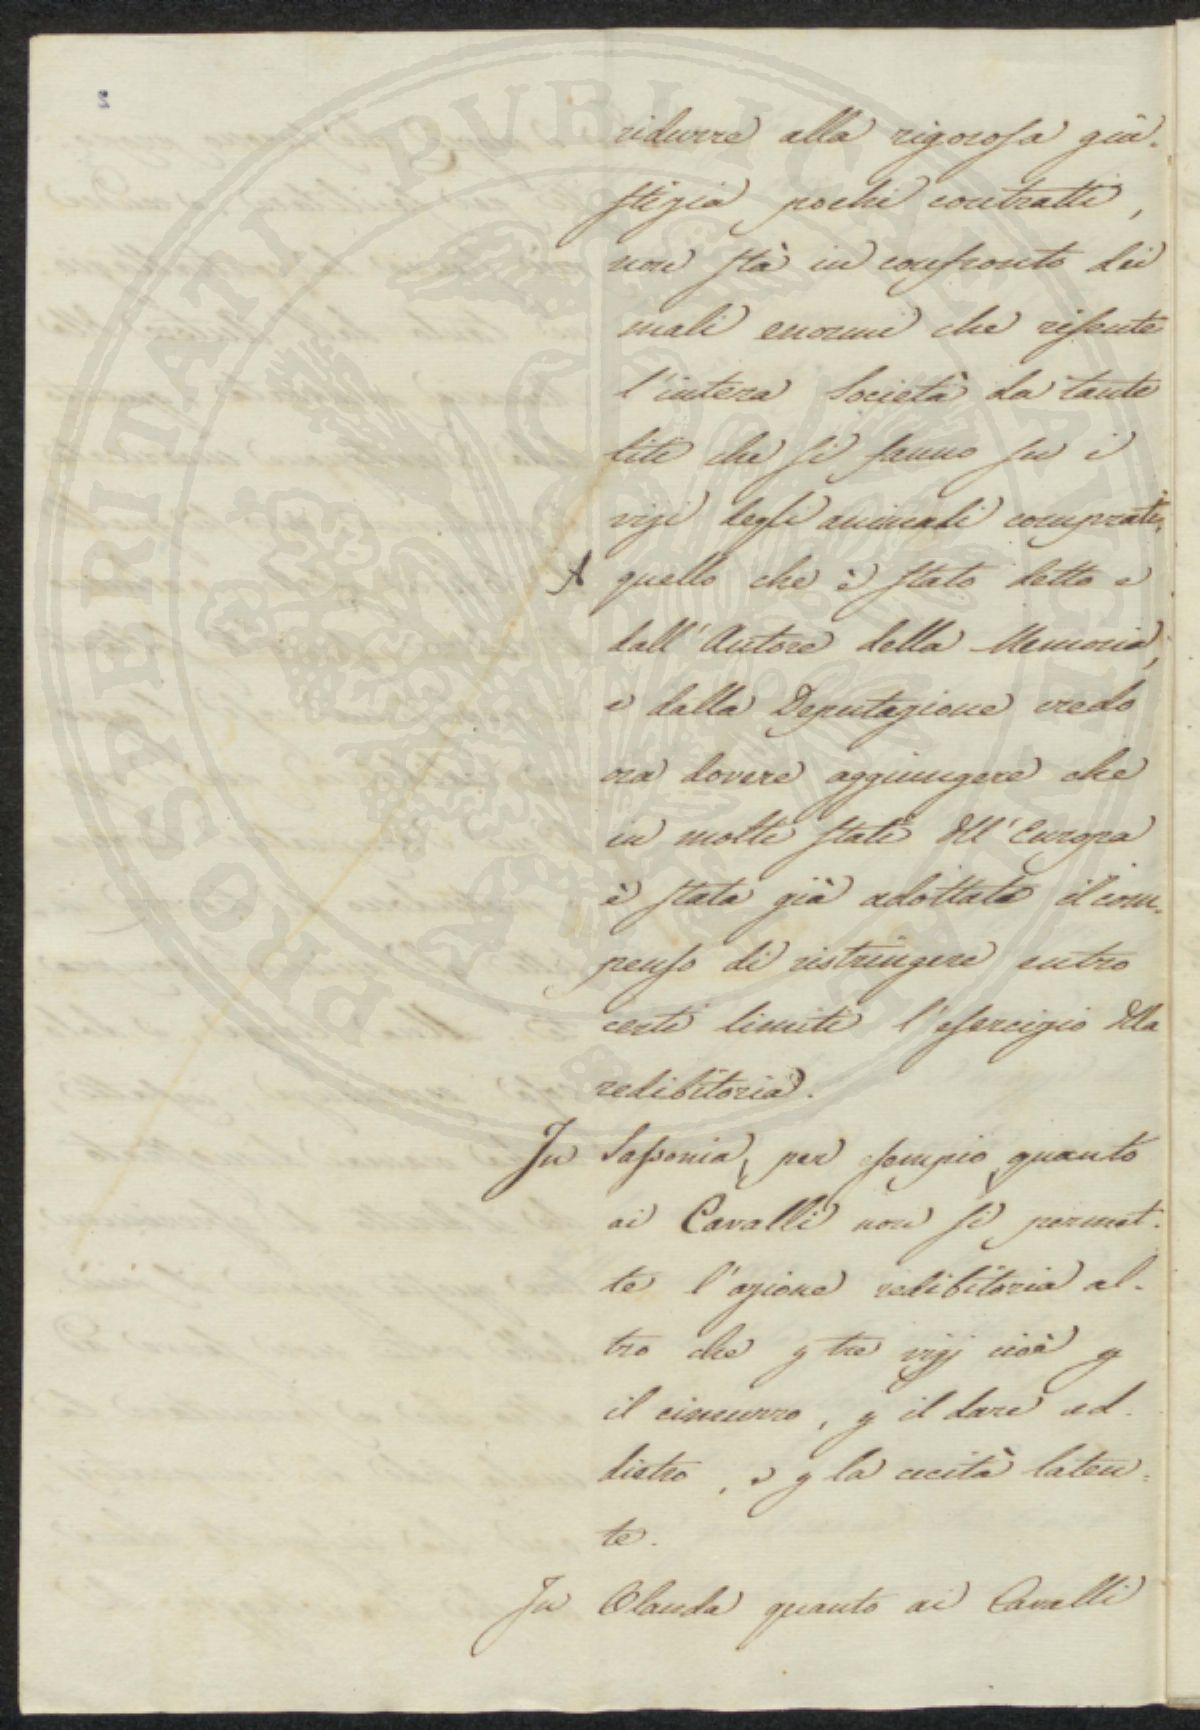 ridurre alla rigorosa giu-
stizia pochi contratti,
non stà in confronto dei
mali enormi che risente
l'intera Società da tante
lite che si fanno su i
vizi degli animali comprati.
A quello che è stato detto e
dall'Autore della Memoria,
e dalla Deputazione credo
ora dovere aggiungere che
in molti stati dll'Europa
è stata già adottata il com-
penso di ristringere entro
certi limiti l'esercizio dlla
redibitoria.
In Sassonia, per esempio, quanto
ai Cavalli non si permet-
te l'azione redibitoria al-
tro che p tre vizj cioè p
il cimurro, p il dare ad-
dietro, e p la cecità laten-
te.
In Olanda quanto ai Cavalli
PROSPERITATI PUBLICAE AUGENDAE